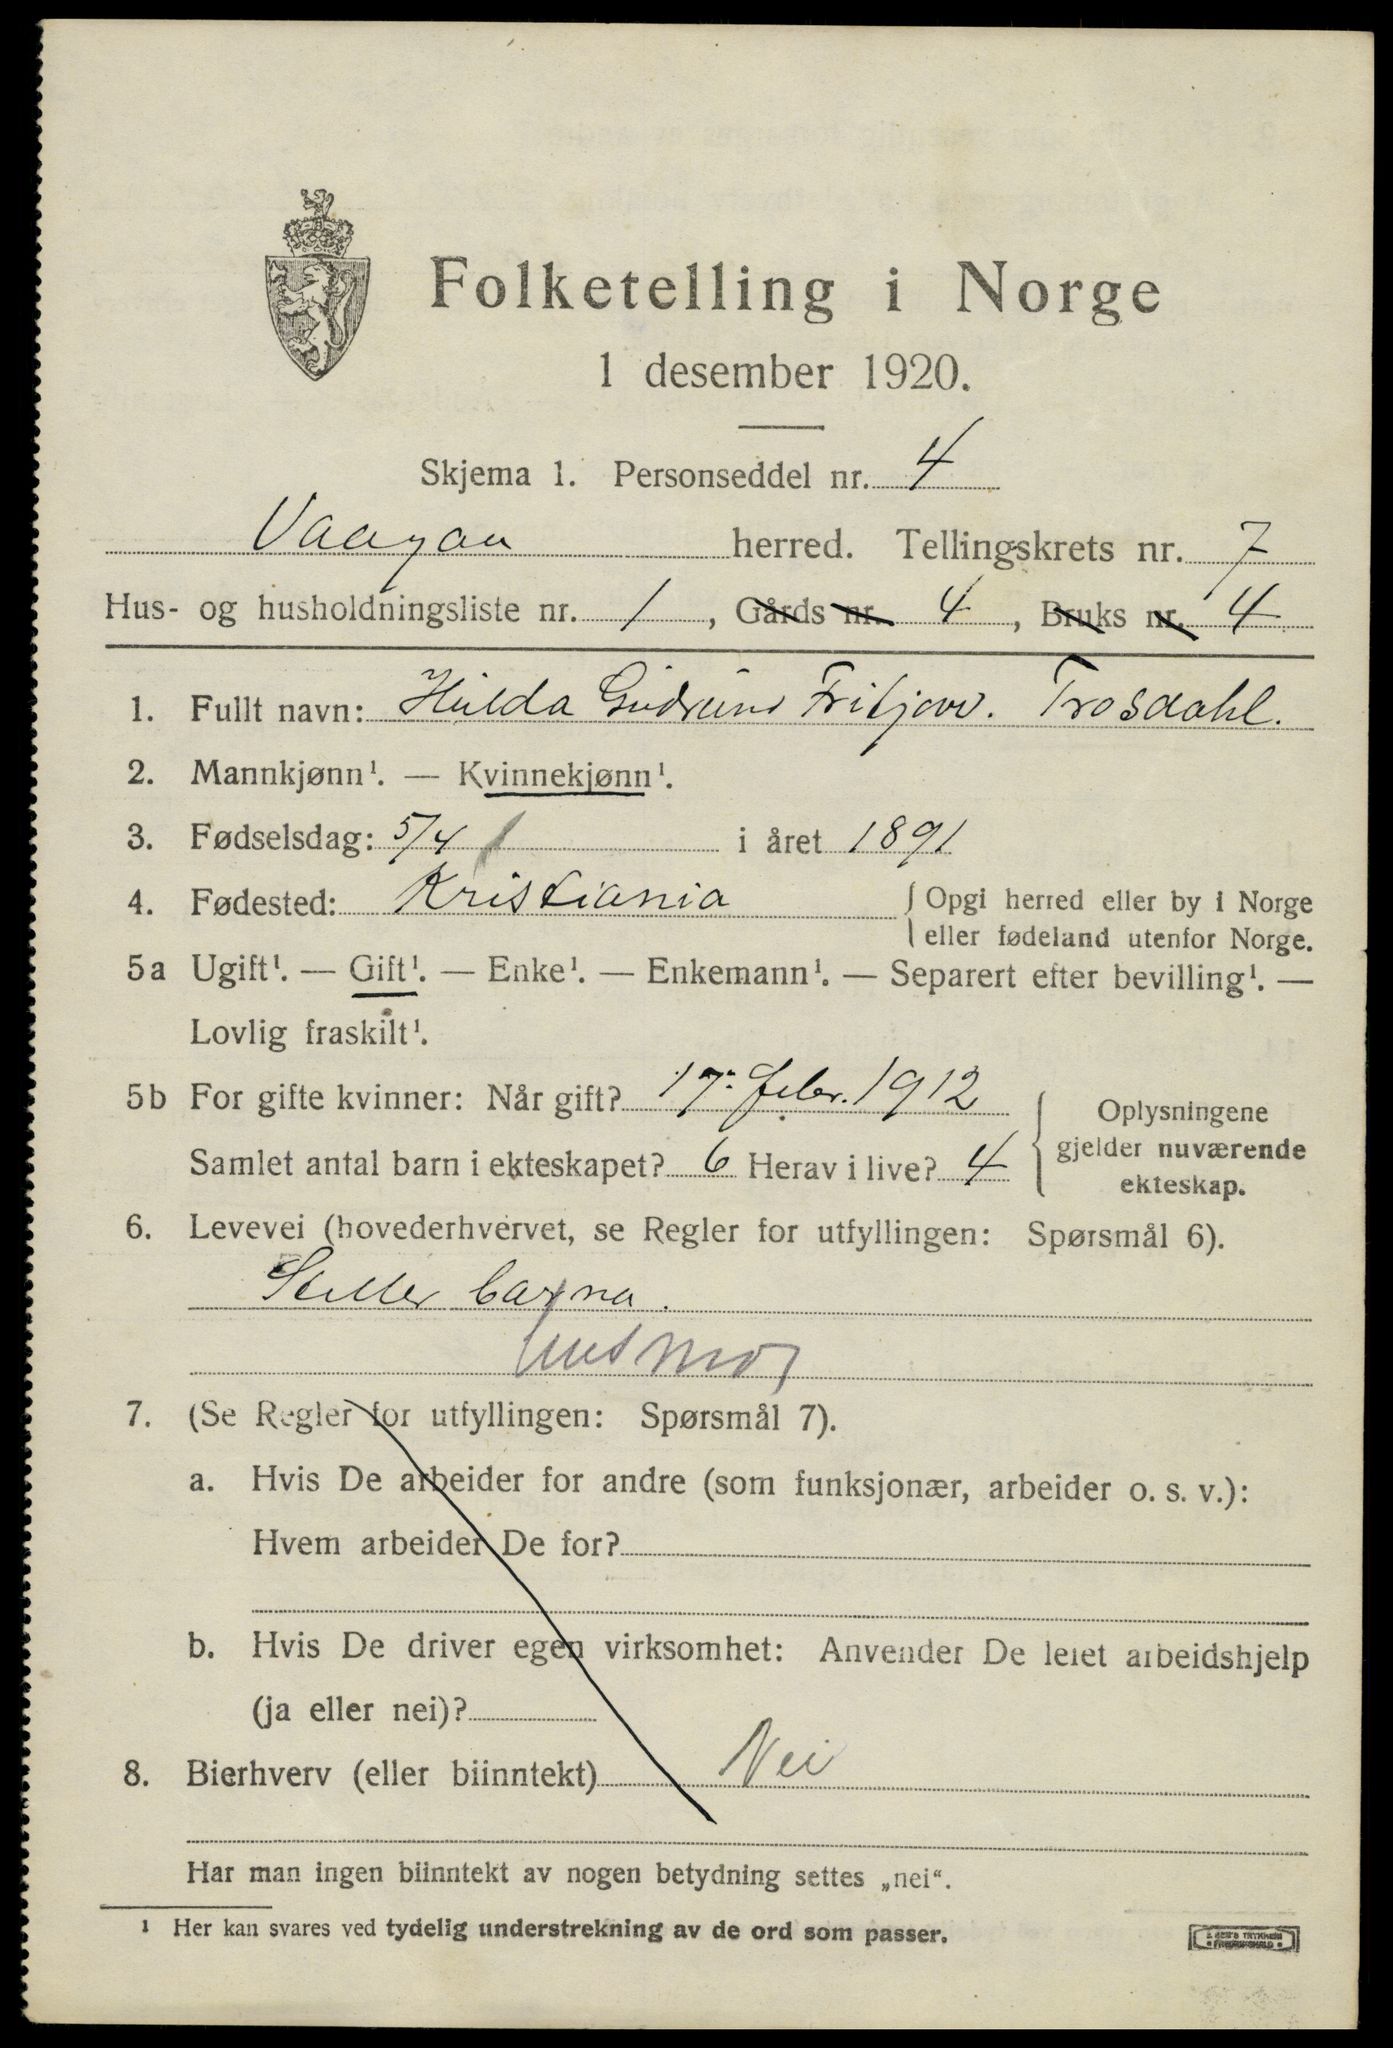 Folketelling i Norge
1 desember 1920.
Skjema 1. Personseddel nr. 4
Vaagan herred. Tellingskrets nr. 7
Hus- og husholdningsliste nr. 1, Gårds nr. 4, Bruks nr. 4
1. Fullt navn: Hulda Gudrun Fritjow. Trosdahl.
2. Mannkjønn¹. — Kvinnekjønn¹.
3. Fødselsdag: 5/4 i året 1891
4. Fødested: Kristiania { Opgi herred eller by i Norge
eller fødeland utenfor Norge.
5a Ugift¹. — Gift¹. — Enke¹. — Enkemann¹. — Separert efter bevilling¹. —
Lovlig fraskilt¹.
5b For gifte kvinner: Når gift? 17. febr. 1912
Samlet antal barn i ekteskapet? 6 Herav i live? 4
Oplysningene
gjelder nuværende
ekteskap.
6. Levevei (hovederhvervet, se Regler for utfyllingen: Spørsmål 6).
Steller barna.
husmor
7. (Se Regler for utfyllingen: Spørsmål 7).
a. Hvis De arbeider for andre (som funksjonær, arbeider o. s. v.):
Hvem arbeider De for?
b. Hvis De driver egen virksomhet: Anvender De leiet arbeidshjelp
(ja eller nei)?
8. Bierhverv (eller biinntekt) Nei
Har man ingen biinntekt av nogen betydning settes „nei“.
¹ Her kan svares ved tydelig understrekning av de ord som passer.